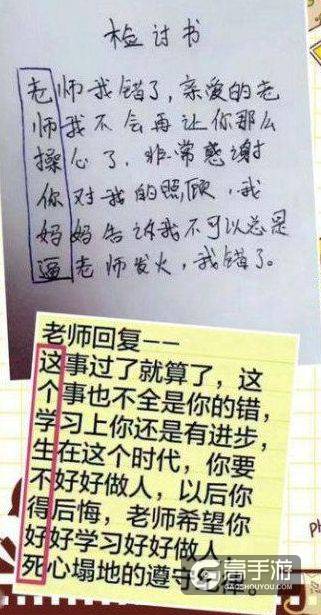 检讨书
老师我错了，亲爱的老
师我不会再让你那么
操心了，非常感谢
你对我的照顾，我
妈妈告诉我不可以总是
逼老师发火，我错了。
老师回复——
这事过了就算了，这
个事也不全是你的错，
学习上你还是有进步，
生在这个时代，你要
不好好做人，以后你
得后悔，老师希望你
好好学习好好做人，
死心塌地的遵守
高手游
GAOSHOUYOU.COM